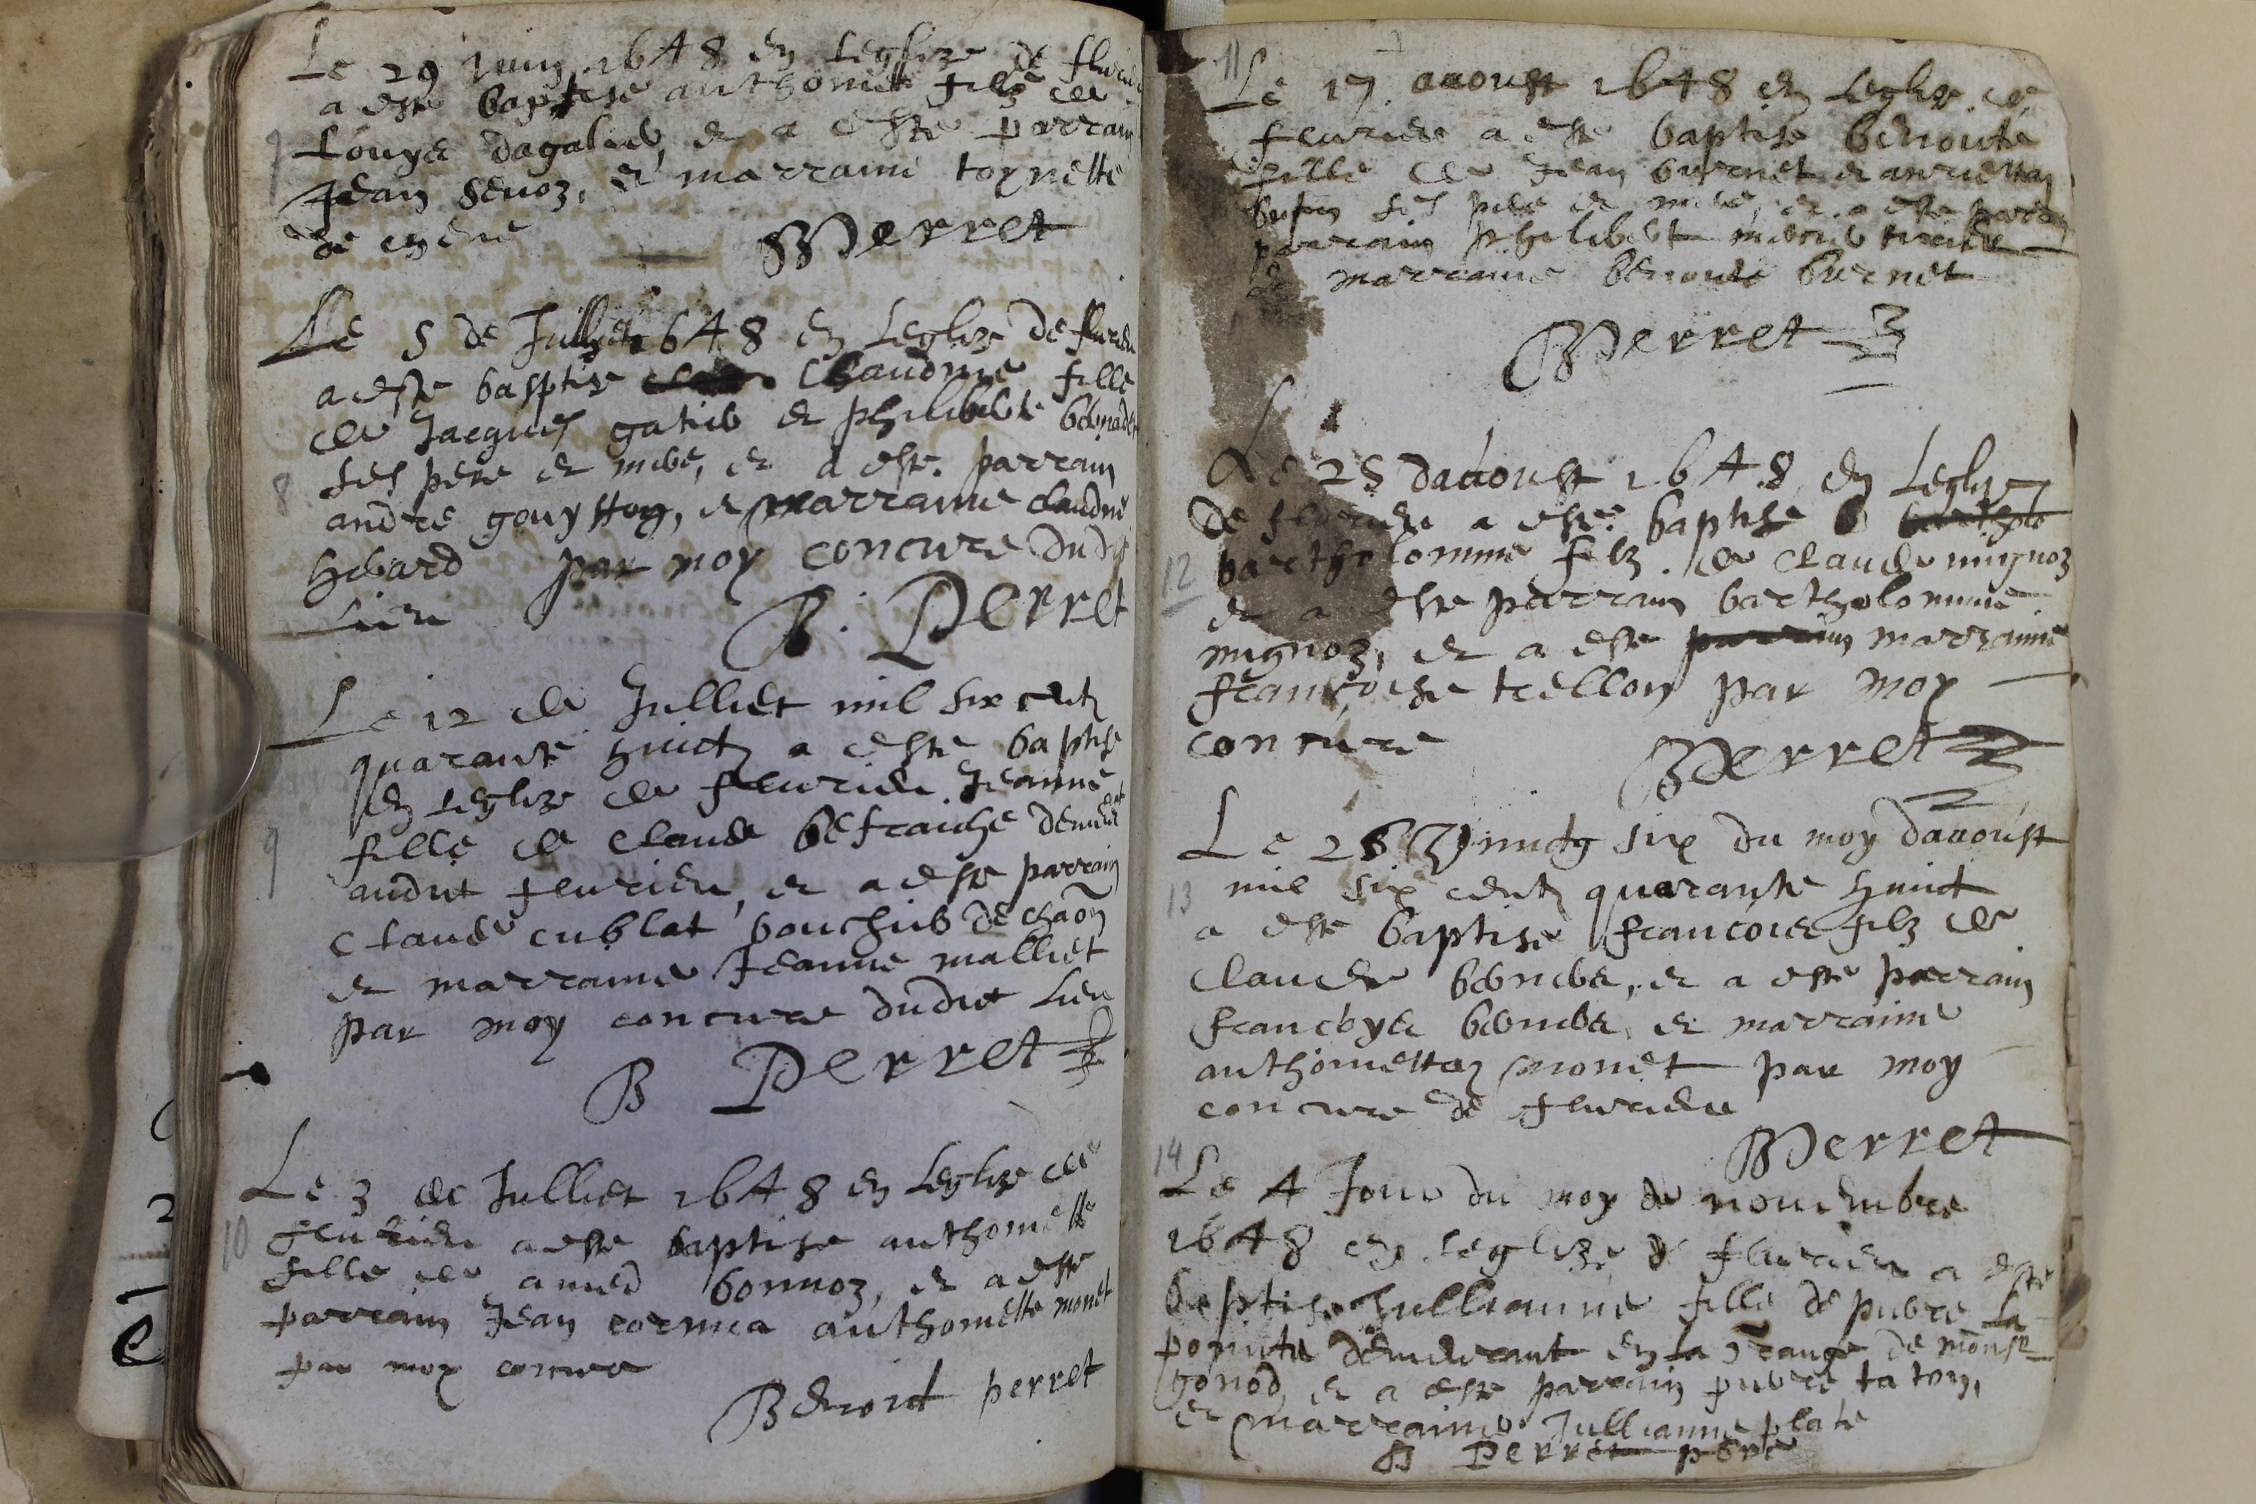 Le 29 juin 1648 en leglize de fleurieu
a este baptise anthoine filz de
Louys dagalier, et a este parrain
7
Jean senoz, et marraine toynette
B Perret
Le 5 de Jullet 1648 en leglize de flurieu
a este basptise Claudine fille
de Jacques gatier et philiberte
ses pere et mere, et a este parrain
8
andre gouytton, et marraine claudine
par moy concure dudit
Lieu
B. Perret
Le 12 de Julliet mil six centz
quarante huictz a este baptise
en leglize de fleurieu Jeanne
fille de Claude befraiche demeurant
9
audit fleurieu, et a este parrain
Claude cublat bouchier de chaon
et marraine Jeanne malliet
par moy concure dudit Lieu
B Perret
Le 3 de Julliet 1648 en leglize de
10
fleurieu a este baptise anthoinette
fille de amed bonnoz, et a este
parrain Jean cormea anthoinette monet
par moy concure
Benoict perret
11
Le 17 auoust 1648 en leglize de
fleurieu a este baptise benoite
fille de Jean burnet et anriettaz
ses pere et mere, et a este
parrain philibert mercier
et marraine benoite burnet
B Perret
Le 25 dauoust 1648 en leglize
de flurieu a este baptise b
12
bartholomme filz de Claude mignoz
et a este parrain bartholomme
mignoz, et a este parrain marraine
francoise trellon par moy
concure
B Perret
Le 26 vingtz six du moy dauoust
13
mil six centz quarante huict
a este baptise francois filz de
Claude bernier, et a este parrain
francoys bernier, et marraine
anthoinettaz monet par moy
concure de fleurieu
B Perret
14
Le 4 Jour du moy de nouembre
1648 en leglize de flurieu a este
baptise Jullianne fille de pierre la
pointe demeurant en la grange de monsr
gonod, et a este parrain pierre taton,
et marraine Jullianne plate
B Perret